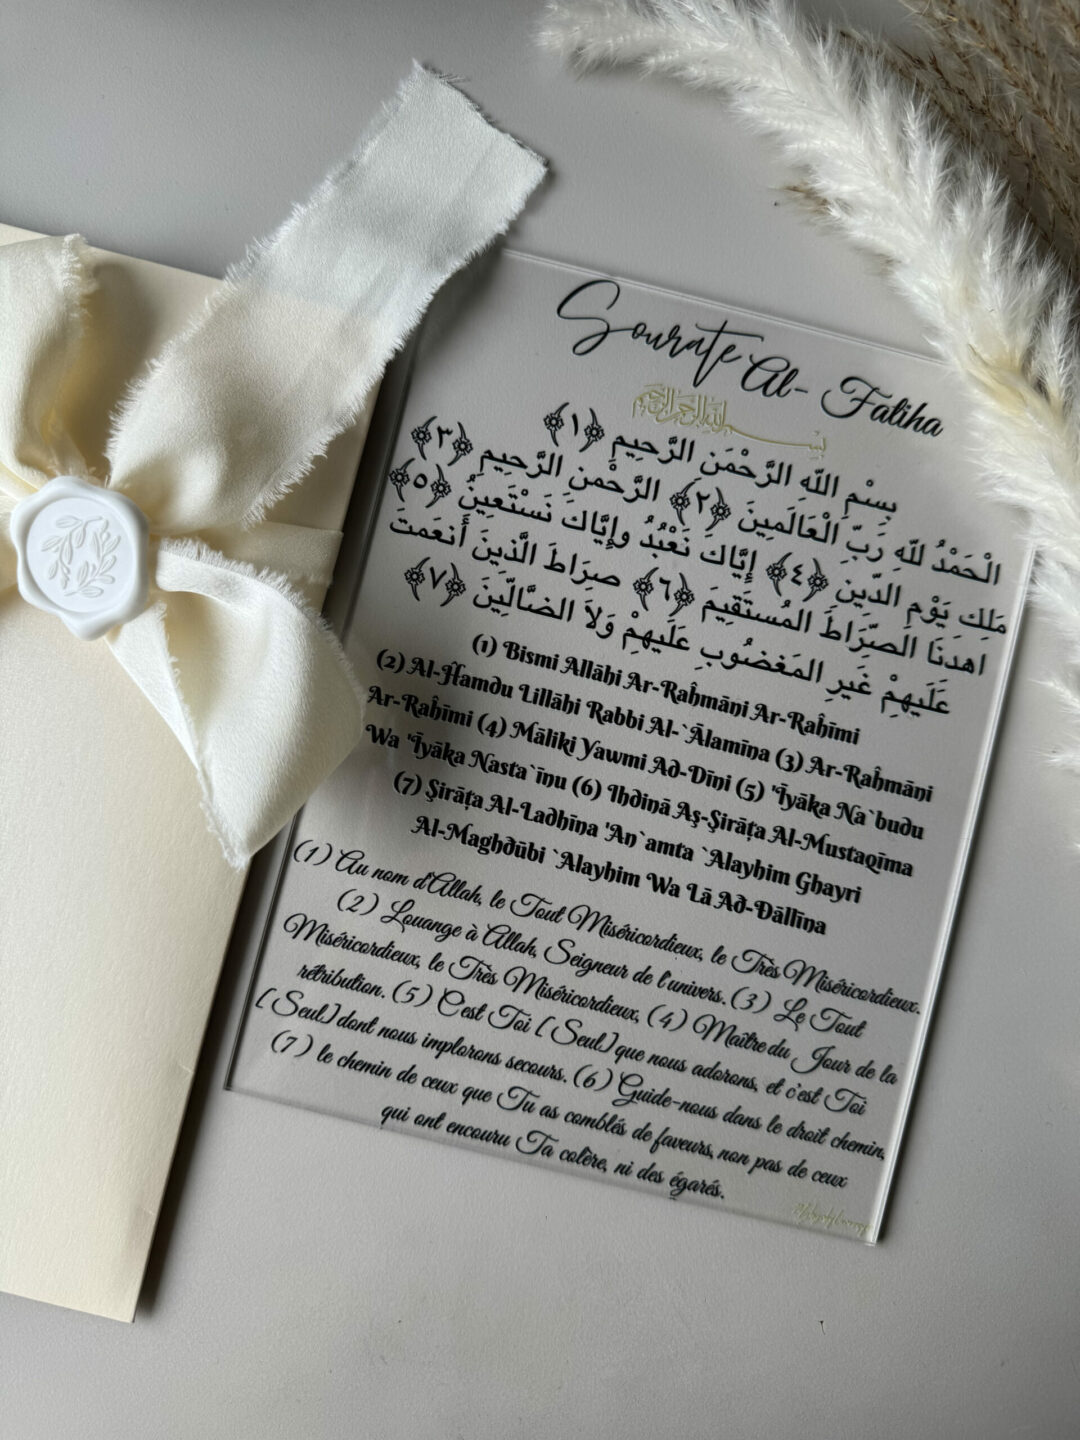 Sourate Al- Fatiha
بِسْمِ اللهِ الرَّحْمَنِ الرَّحِيمِ
بِسْمِ اللّهِ الرَّحْمَنِ الرَّحِيمِ ﴿١﴾
الْحَمْدُ للّهِ رَبِّ الْعَالَمِينَ ﴿٢﴾ الرَّحْمنِ الرَّحِيمِ ﴿٣﴾
مَلِكِ يَوْمِ الدِّينِ ﴿٤﴾ إِيَّاكَ نَعْبُدُ وإِيَّاكَ نَسْتَعِينُ ﴿٥﴾
اهدَنَا الصِّرَاطَ المُستَقِيمَ ﴿٦﴾ صِرَاطَ الَّذِينَ أَنعَمتَ
عَلَيهِمْ غَيرِ المَغضُوبِ عَلَيهِمْ وَلاَ الضَّالِّينَ ﴿٧﴾
(1) Bismi Allāhi Ar-Raĥmāni Ar-Raĥīmi
(2) Al-Ĥamdu Lillāhi Rabbi Al-`Ālamīna (3) Ar-Raĥmāni
Ar-Raĥīmi (4) Māliki Yawmi Ad-Dīni (5) 'Īyāka Na`budu
Wa 'Īyāka Nasta`īnu (6) Ihdinā Aş-Şirāţa Al-Mustaqīma
(7) Şirāţa Al-Ladhīna 'An`amta `Alayhim Ghayri
Al-Maghđūbi `Alayhim Wa Lā Ađ-Đāllīna
(1) Au nom d'Allah, le Tout Miséricordieux, le Très Miséricordieux.
(2) Louange à Allah, Seigneur de l'univers. (3) Le Tout
Miséricordieux, le Très Miséricordieux, (4) Maître du Jour de la
rétribution. (5) C'est Toi [Seul] que nous adorons, et c'est Toi
[Seul] dont nous implorons secours. (6) Guide-nous dans le droit chemin,
(7) le chemin de ceux que Tu as comblés de faveurs, non pas de ceux
qui ont encouru Ta colère, ni des égarés.